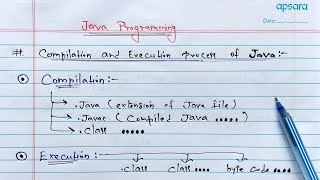 apsara
Date:
Java Programming
#. Compilation and Execution process of Java:-
Compilation:-
.Java (extension of Java file)
.Javac (Compiled Java .....)
.class .....
Execution:
.class class.... byte code....